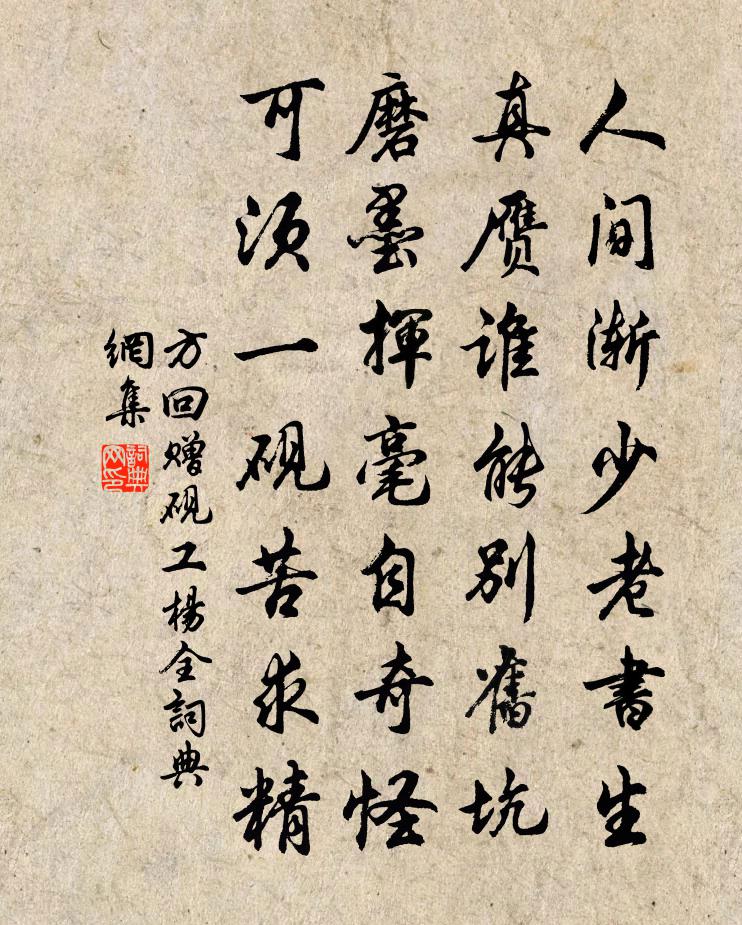 人间渐少老書生
真赝谁能别舊坑
磨墨揮毫自奇怪
可须一砚苦求精
方回赠砚工楊全詞典
網集
詞典
网印